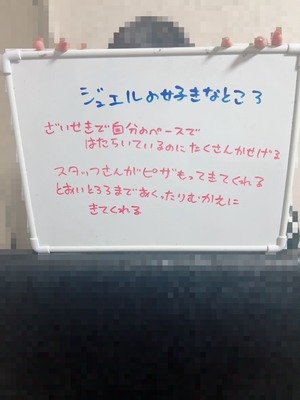 ジュエルの好きなところ
ざいせきで自分のペースで
はたらいているのにたくさんかせげる
スタッフさんがピザもってきてくれる
とおいところまであくったりむかえに
きてくれる